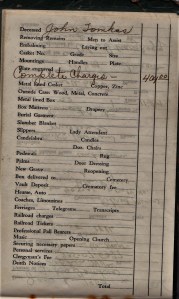 Deceased John Tomkas
Removing Remains Men to Assist
Embalming Laying out
Casket No. Grade
Mountings: Handles Plate
Complete Charges — 404.00
Metal lined Casket Copper, Zinc
Outside Case Wood, Metal, Concrete
Metal lined Box
Box Mattress Drapery
Burial Garment
Slumber Blanket
Slippers Lady Attendant
Candelabra Candles
Door Chairs
Pedestal Rug
Palms Door Draping
New Grave Reopening
Box delivered to Cemetery
Vault Deposit Cemetery fee
Hearse, Auto
Coaches, Limousines
Ferriages Telegrams Transcripts
Railroad charges
Railroad Tickets
Professional Pall Bearers
Music Opening Church
Securing necessary papers
Personal services
Clergyman's Fee
Death Notices
Total